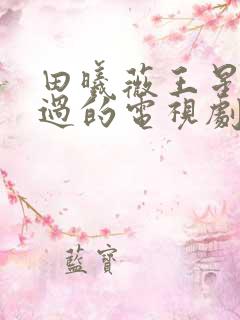 田曦薇王星
過的電視劇
藍寶